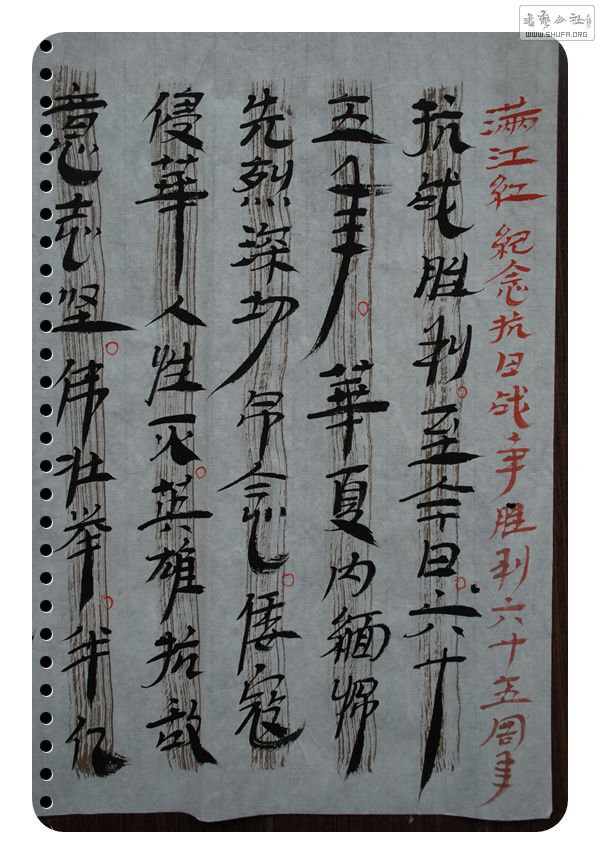 書藝公社
WWW.SHUFA.ORG
满江红 紀念抗日战争胜利六十五周年
抗战胜利至今日六十
五年華夏内緬怀
先烈深切吊念倭寇
侵華人性灭英雄抗敌
意志坚伟壮举半亿